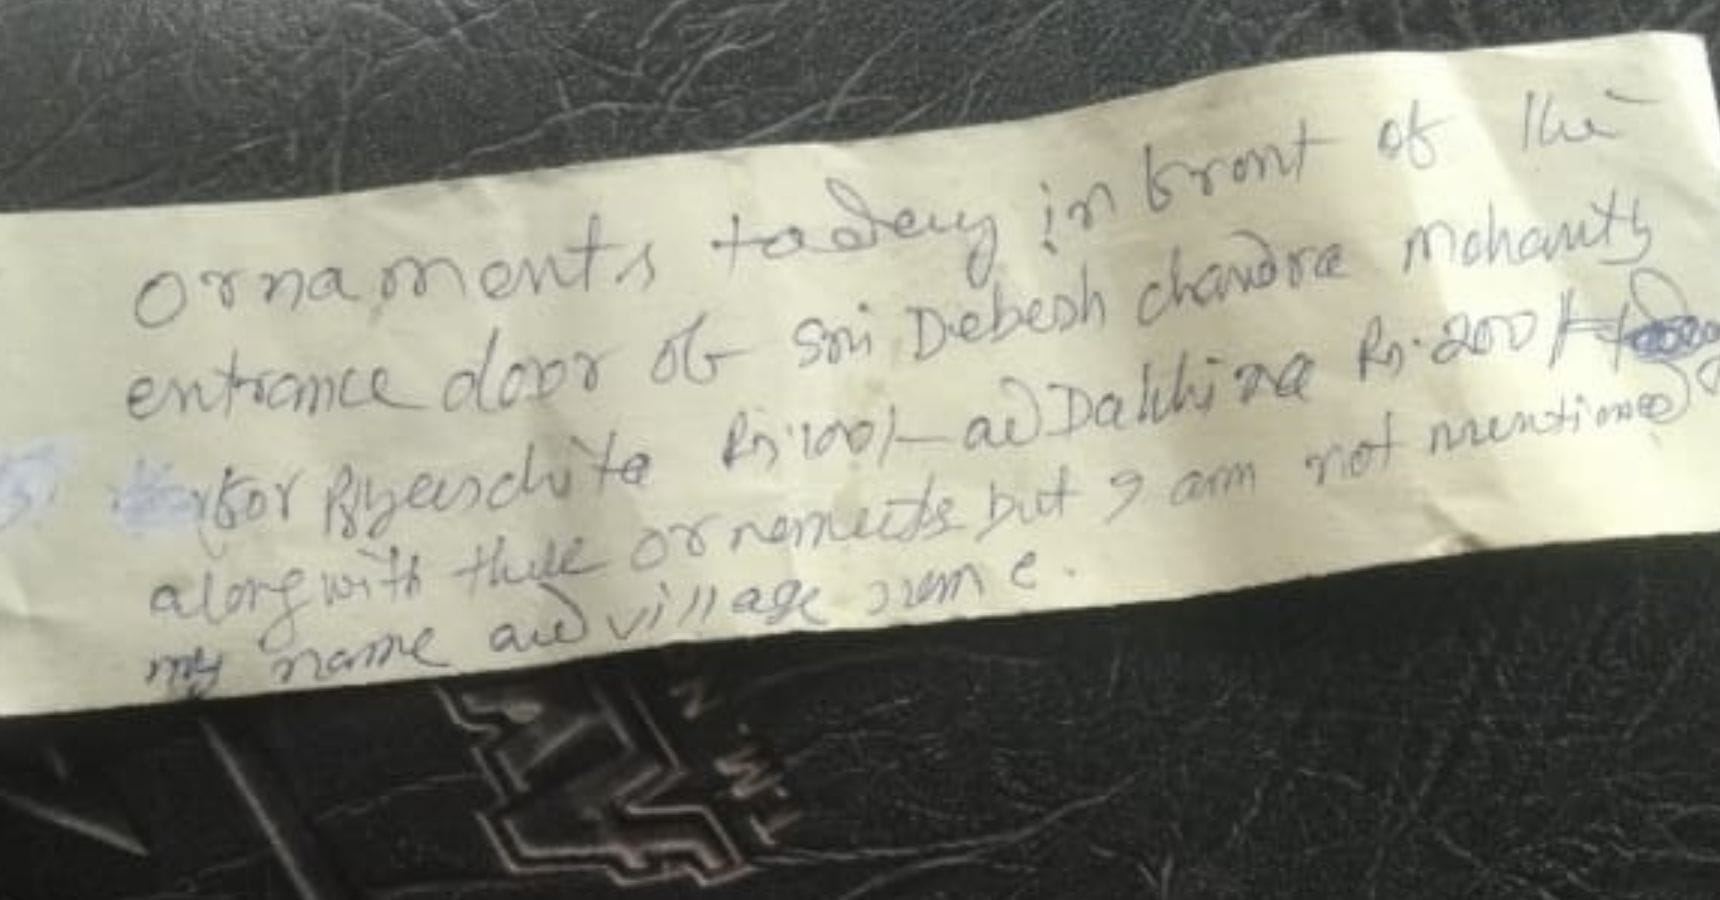 ornaments today in front of the
entrance door of Sri Debesh chandra Mohanty
for Pryaschita Rs.100/- and Dakhina Rs.200/-
along with these ornaments but I am not mentioned
my name and village name.